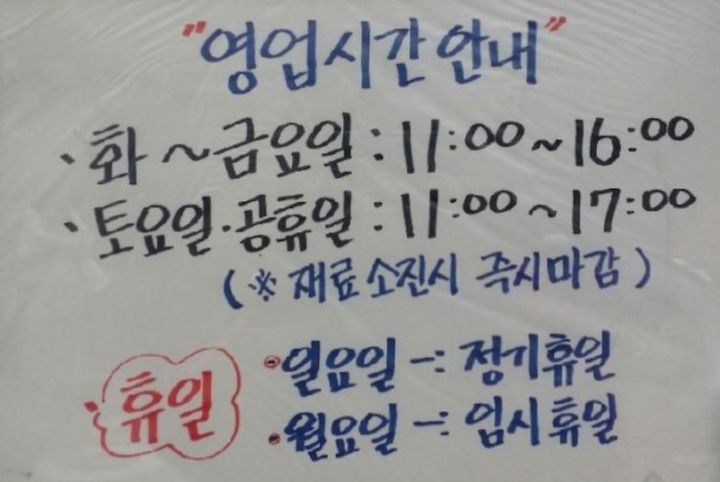 "영업시간 안내"
· 화 ~ 금요일 : 11:00 ~ 16:00
· 토요일·공휴일 : 11:00 ~ 17:00
(※ 재료소진시 즉시마감)
· 휴일
· 일요일 -: 정기휴일
· 월요일 -: 임시휴일